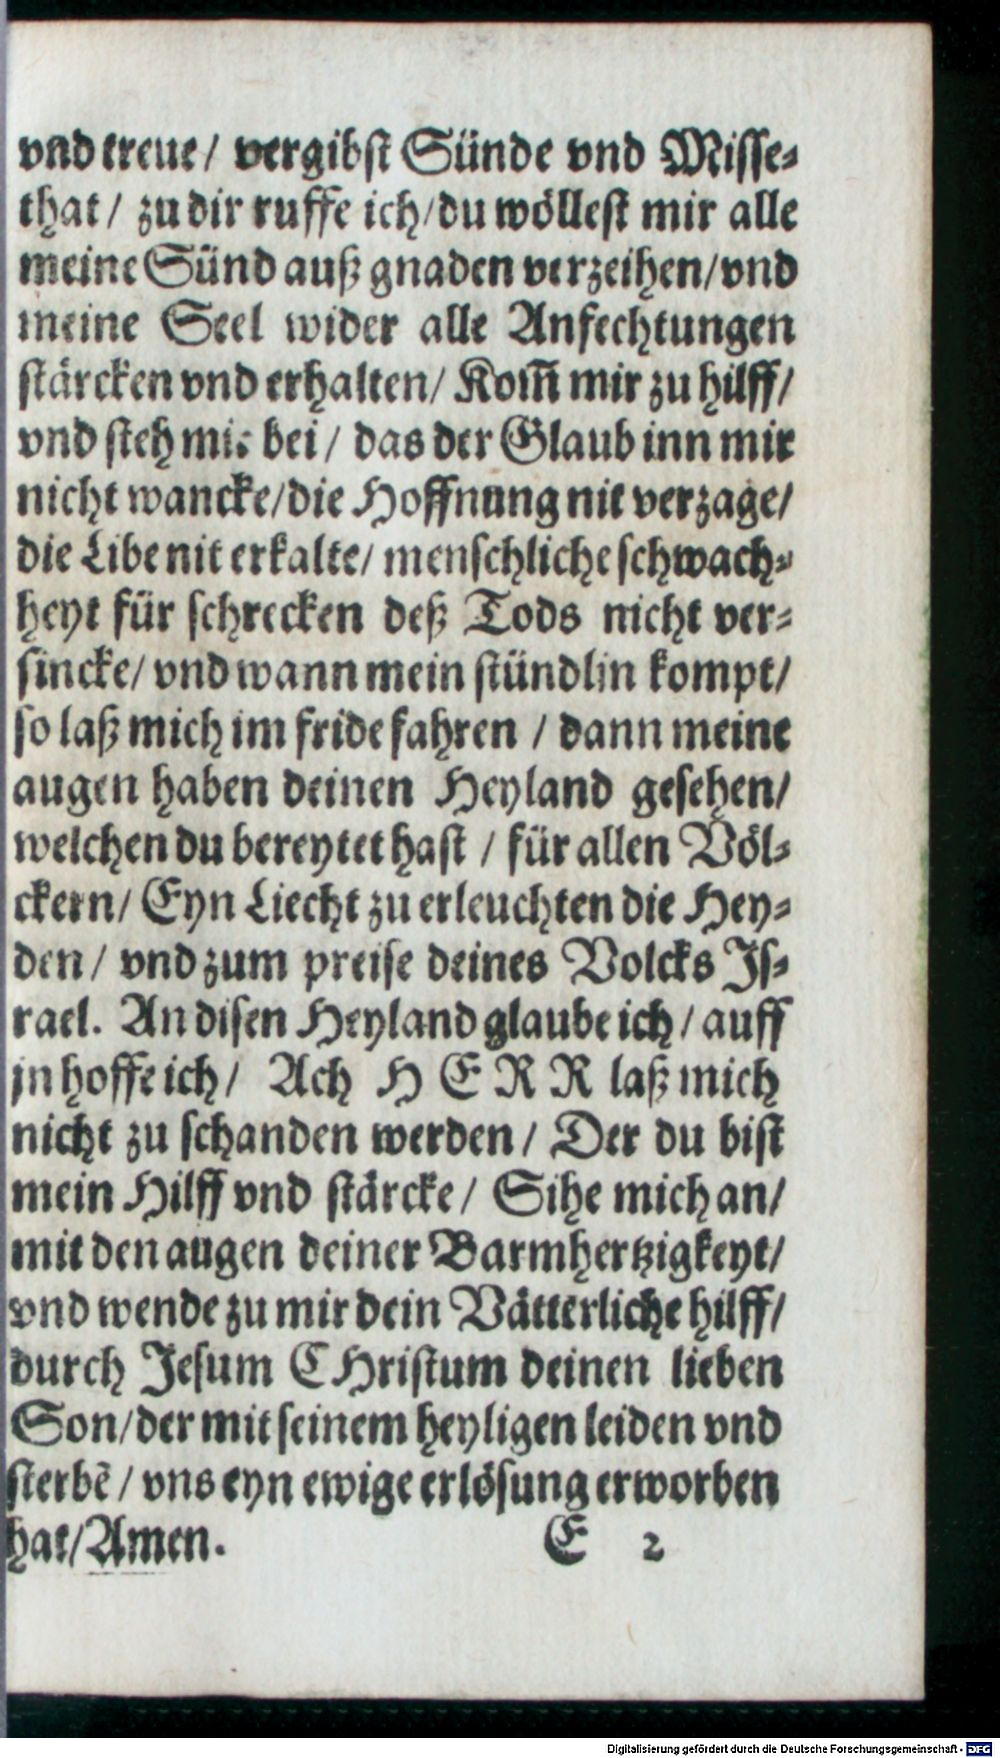 vnd treue / vergibst Sünde vnd Misse-
that / zu dir ruffe ich / du wöllest mir alle
meine Sünd auß gnaden verzeihen / vnd
meine Seel wider alle Anfechtungen
stärcken vnd erhalten / Kom̃ mir zu hilff /
vnd steh mir bei / das der Glaub inn mir
nicht wancke / die Hoffnung nit verzage /
die Libe nit erkalte / menschliche schwach-
heyt für schrecken deß Tods nicht ver-
sincke / vnd wann mein stündlin kompt /
so laß mich im fride fahren / dann meine
augen haben deinen Heyland gesehen /
welchen du bereytet hast / für allen Völ-
ckern / Eyn Liecht zu erleuchten die Hey-
den / vnd zum preise deines Volcks Is-
rael. An disen Heyland glaube ich / auff
jn hoffe ich / Ach HERR laß mich
nicht zu schanden werden / Der du bist
mein Hilff vnd stärcke / Sihe mich an /
mit den augen deiner Barmhertzigkeyt /
vnd wende zu mir dein Vätterliche hilff /
durch Jesum CHristum deinen lieben
Son / der mit seinem heyligen leiden vnd
sterbẽ / vns eyn ewige erlösung erworben
hat / Amen.
E 2
Digitalisierung gefördert durch die Deutsche Forschungsgemeinschaft - DFG